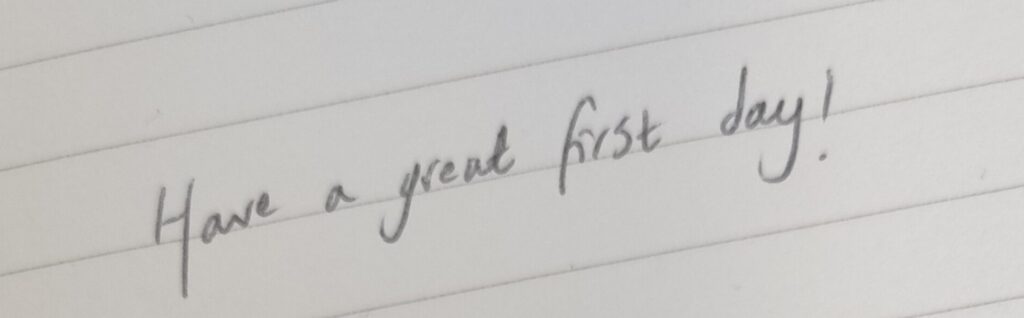 Have a great first day!